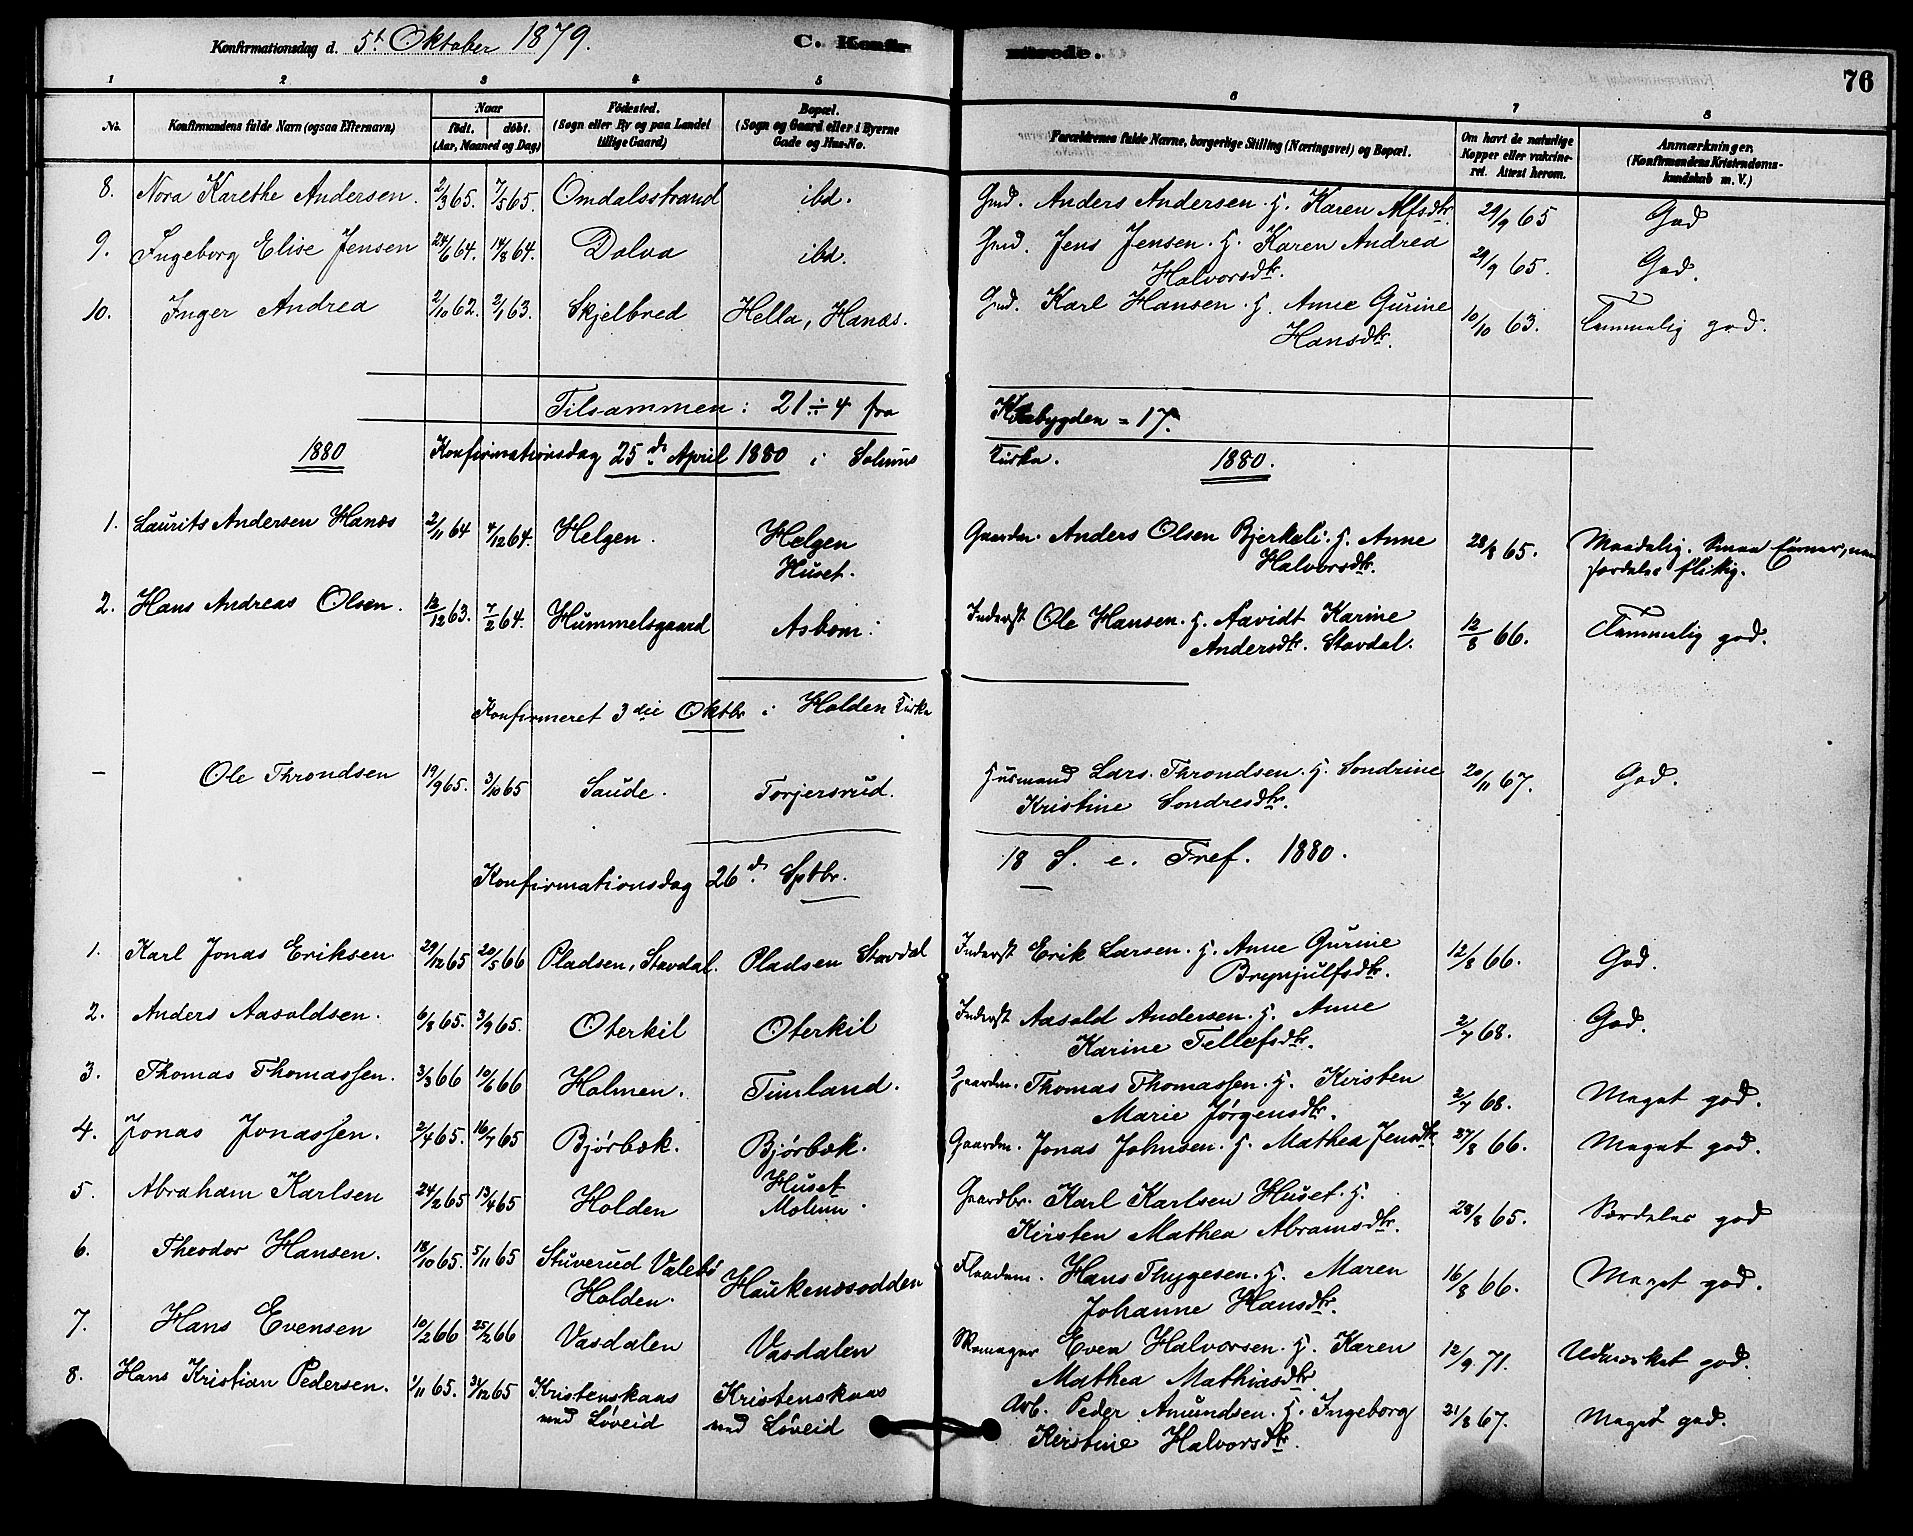 Konfirmationsdag d. 5te Oktober 1879. C. Konfirmerede. 76
1 2 3 4 5 6 7 8
No. Konfirmandens fulde Navn (ogsaa Efternavn) Naar født. døbt. (Aar, Maaned og Dag) Fødested. (Sogn eller By og paa Landet tillige Gaard) Bopæl. (Sogn og Gaard eller i Byerne Gade og Hus-No. Forældrenes fulde Navne, borgerlige Stilling (Næringsvei) og Bopæl. Om havt de naturlige Kopper eller vakcineret. Attest herom. Anmærkninger. (Konfirmandens Kristendomskundskab m. V.)
8. Nora Karethe Andersen. 2/3 65. 7/5 65. Omdalsstrand ibd. Gmd. Anders Andersen. H. Karen Alfsdtr. 29/9 65 God
9. Ingeborg Elise Jensen 24/6 64. 14/8 64. Dalva ibd. Gmd. Jens Jensen. H. Karen Andrea Halvorsdtr. 29/9 65. God.
10. Inger Andrea 2/10 62. 2/1 63. Skjelbred Hella, Hanæs. Gmd. Karl Hansen. H. Anne Gurine Hansdtr. 10/10 63. Temmelig god.
Tilsammen: 21 ÷ 4 fra Kilebygden = 17.
1880 Konfirmationsdag 25de April 1880 i Solums Kirke. 1880.
1. Laurits Andersen Hanæs 2/11 64 4/12 64. Helgen. Helgen Huset. Gaardm. Anders Olsen Bjerkeli. H. Anne Halvorsdtr. 28/8 65. Maadelig. Smaa Evner, men særdeles flittig.
2. Hans Andreas Olsen. 12/12 63. 7/2 64. Hummelsgaard Asbom: Inderst Ole Hansen. H. Aavidt Karine Andersdtr. Stavdal. 12/8 66. Temmelig god.
Konfirmeret 3die Oktbr i Holden Kirke
– Ole Throndsen 19/9 65. 3/10 65 Saude. Torjersrud. Husmand Lars Throndsen. H. Sondrine Kristine Sondresdtr. 20/11 67. God.
Konfirmationsdag 26de Sptbr. 18 S. e. Tref. 1880.
1. Karl Jonas Eriksen 29/12 65 20/5 66 Pladsen, Stavdal. Pladsen Stavdal Inderst Erik Larsen. H. Anne Gurine Brynjulfsdtr. 12/8 66. God.
2. Anders Aasoldsen. 6/8 65. 3/9 65. Oterkil Oterkil Inderst Aasold Andersen. H. Anne Karine Tellefsdtr. 2/7 68. God.
3. Thomas Thomassen. 3/3 66 10/6 66 Holmen. Timland. Gaardm. Thomas Thomassen. H. Kirsten Marie Jørgensdtr. 2/7 68. Meget god.
4. Jonas Jonassen. 2/4 65. 16/7 65 Bjørbæk. Bjørbæk. Gaardm. Jonas Johnsen. H. Mathea Jensdtr. 27/8 66. Meget god.
5. Abraham Karlsen 24/2 65 13/4 65 Holden Huset Molum. Gaardbr. Karl Karlsen Huset. H. Kirsten Mathea Abramsdtr. 28/8 65. Særdeles god
6. Theodor Hansen. 18/10 65. 5/11 65 Stuverud Valebø Holden. Haukenæsodden Hans Thygesen. H. Maren Johanne Hansdtr. 16/8 66. Meget god.
7. Hans Evensen 10/2 66 25/2 66 Vasdalen Vasdalen Skomager Even Halvorsen. H. Karen Mathea Mathiasdtr. 12/9 71. Udmærket god.
8. Hans Kristian Pedersen. 1/11 65. 31/12 65 Kristenskaas ved Løveid Kristenskaas ved Løveid Arb. Peder Amundsen. H. Ingeborg Kirstine Halvorsdtr. 21/8 67. Meget god.